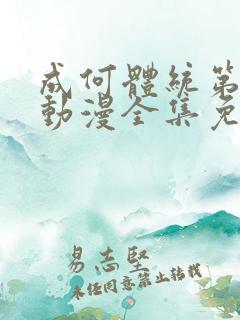 成何體統第
動漫全集免
易志堅
未經同意禁止轉載